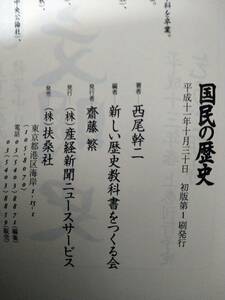 国民の歴史
平成十一年十月三十日　初版第1刷発行
著者　西尾幹二
編者　新しい歴史教科書をつくる会
発行者　齋藤　繁
発行　(株)産経新聞ニュースサービス
発売　(株)扶桑社
東京都港区海岸